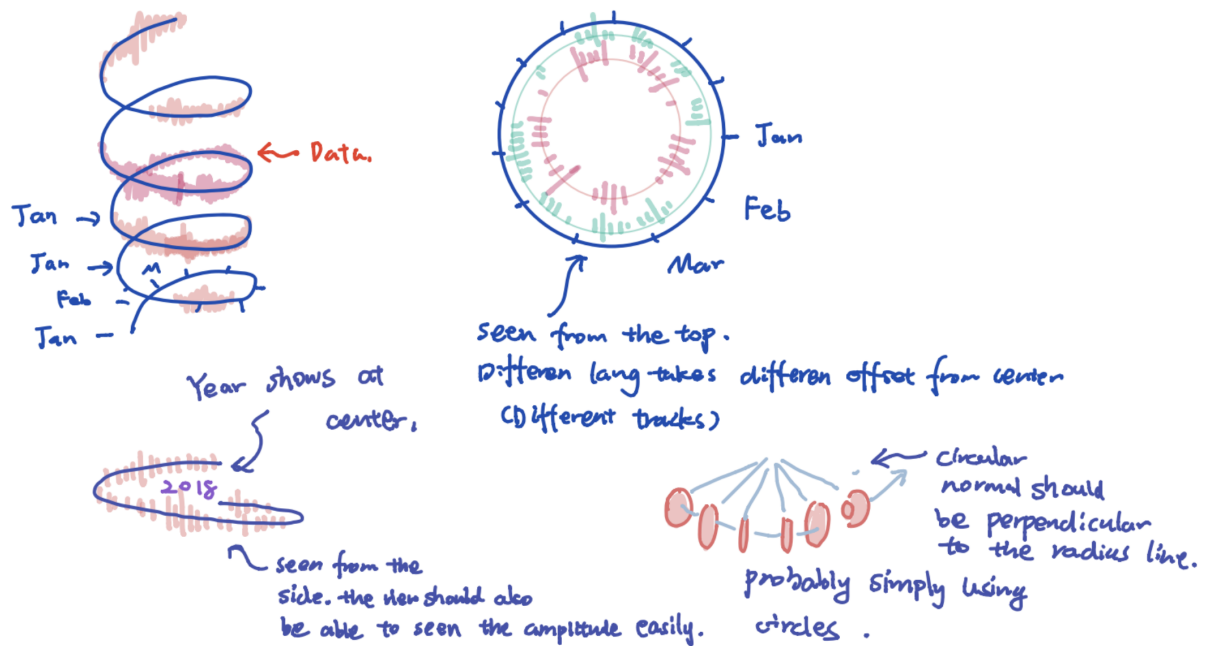 Data.
Jan
Jan
M
Feb
Jan
Jan
Feb
Mar
seen from the top.
Differen lang takes differen offset from center
(Different tracks)
Year shows at
center.
2018
seen from the
side. the user should also
be able to seen the amplitude easily.
circular
normal should
be perpendicular
to the radius line.
probably simply using
circles.